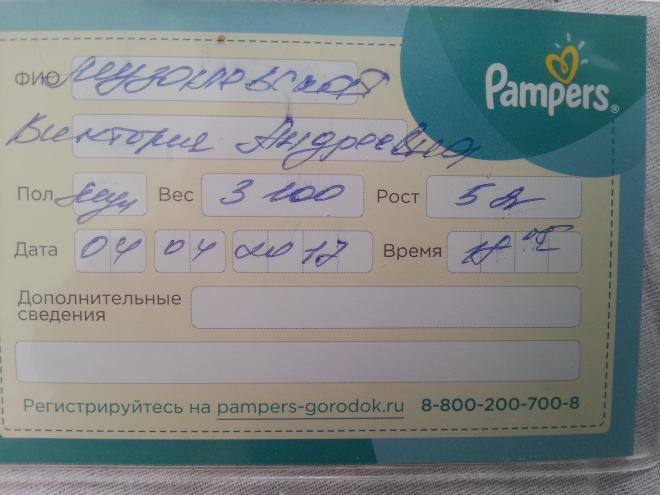 Pampers
ФИО
Виктория Андреевна
Пол муж Вес 3 100 Рост 52
Дата 04 04 2017 Время
Дополнительные
сведения
Регистрируйтесь на pampers-gorodok.ru 8-800-200-700-8